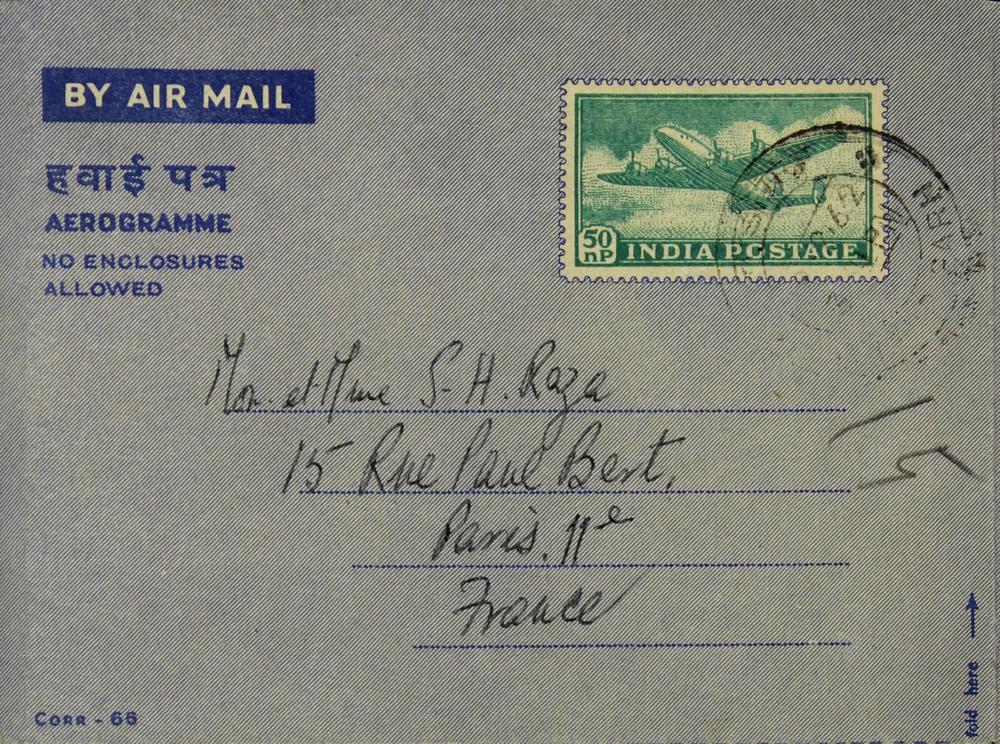 BY AIR MAIL
हवाई पत्र
AEROGRAMME
NO ENCLOSURES
ALLOWED
50
nP
INDIA POSTAGE
Mon. et Mme S-H. Raza
15 Rue Paul Bert,
Paris. 11e
France
15
CORR - 66
fold here